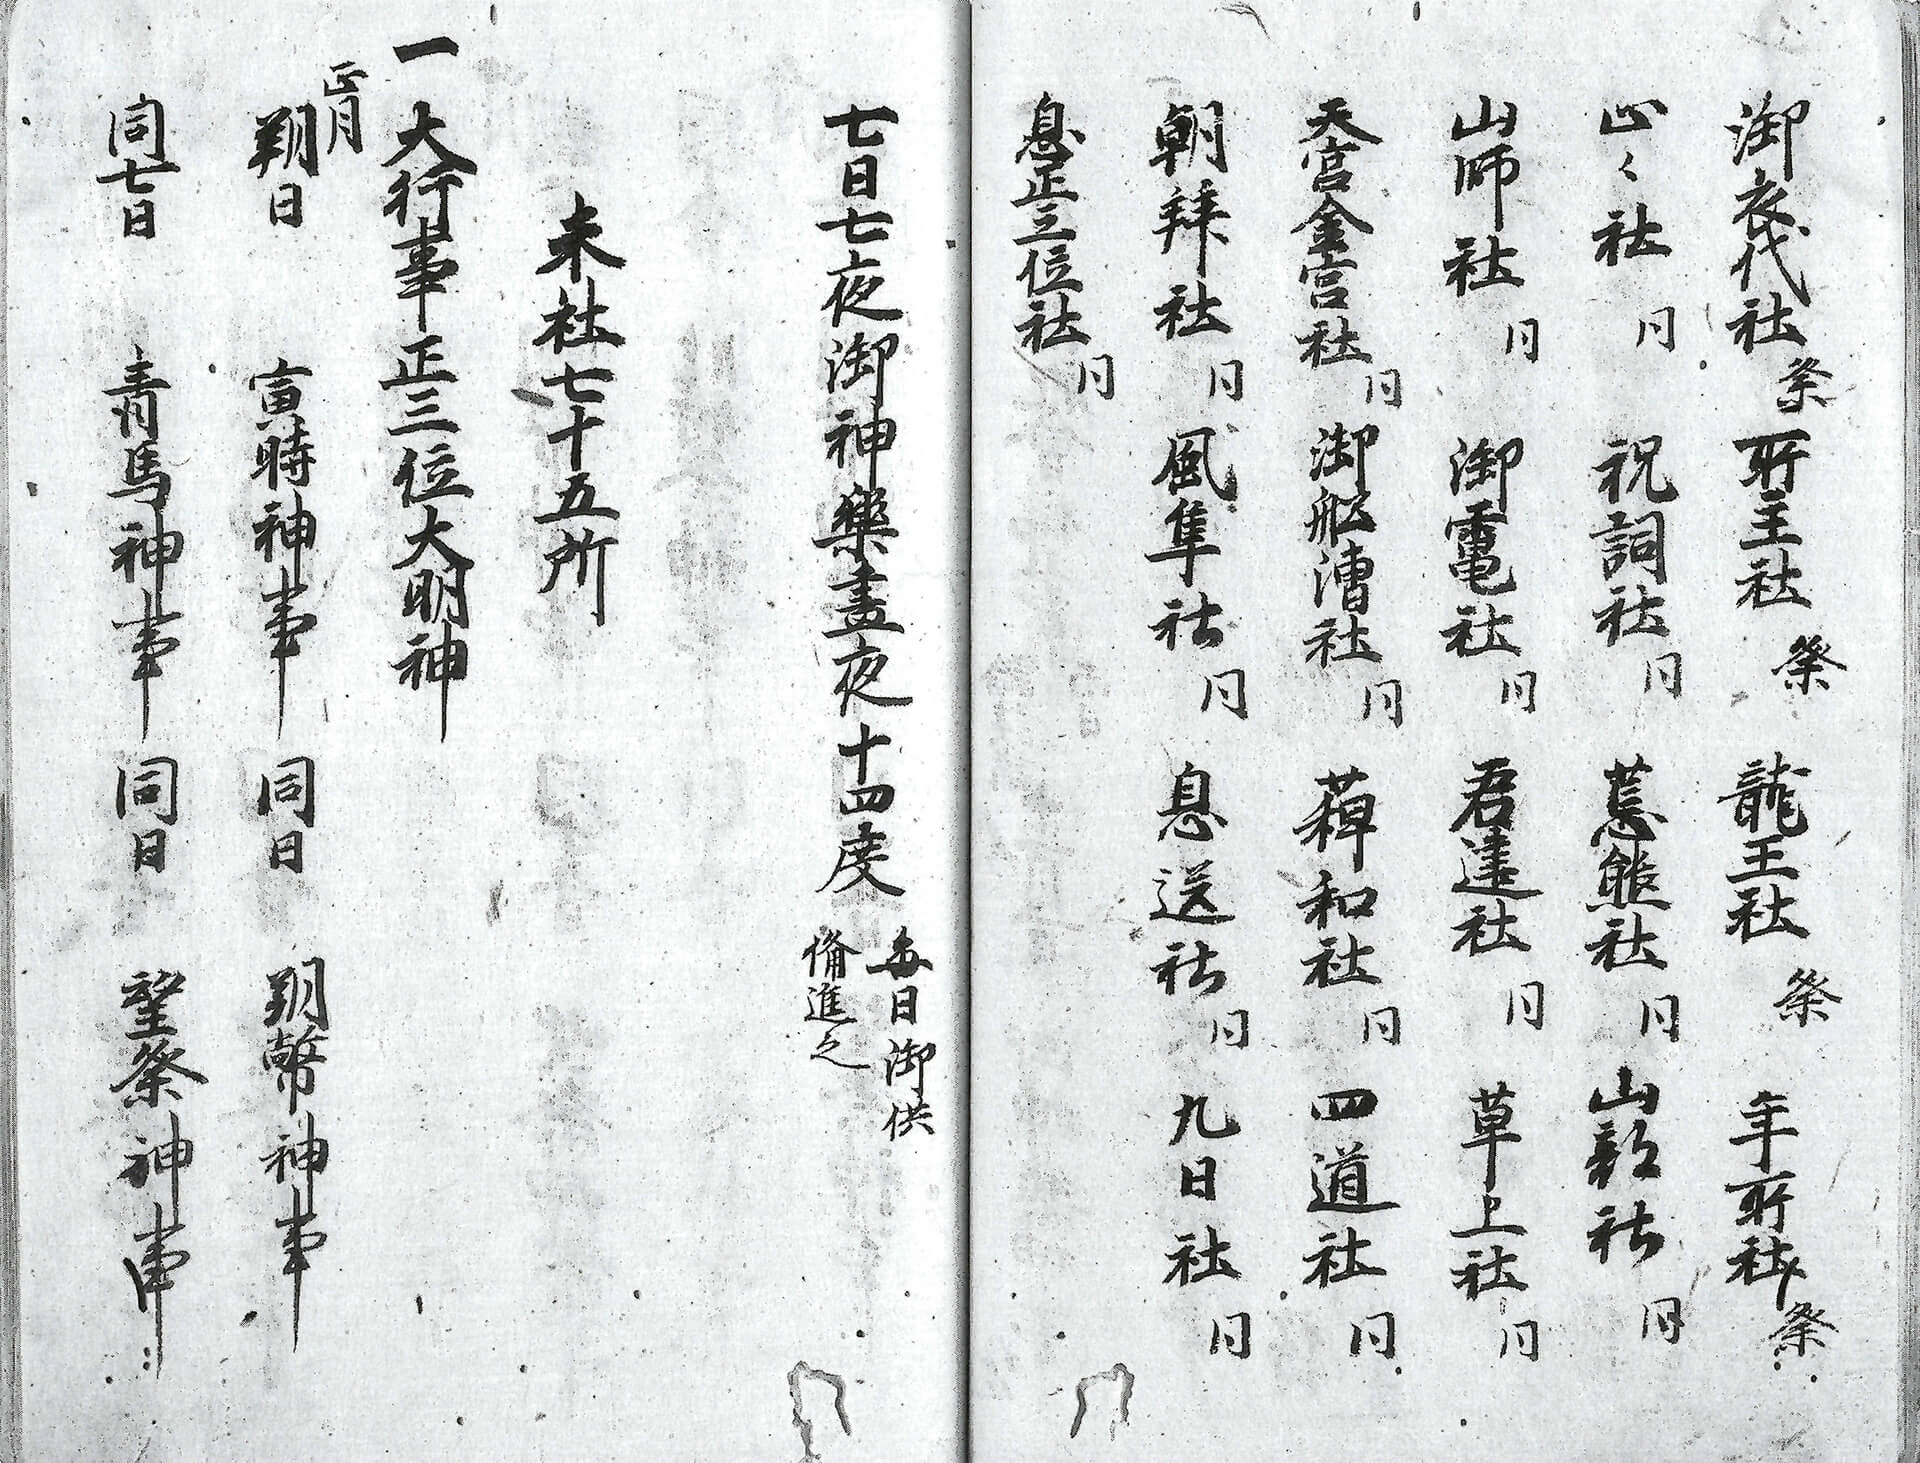 御衣代社 祭 所主社 祭 龍王社 祭 年所社 祭
山々社 同 祝詞社 同 荒熊社 同 山部社 同
山師社 同 御電社 同 君達社 同 草上社 同
天宮金宮社 同 御舩漕社 同 和社 同 四道社 同
朝拜社 同 風隼社 同 息送社 同 九日社 同
息正三位社 同
七日七夜御神樂晝夜十四度 毎日御供
備進之
末社七十五所
一 大行事正三位大明神
正月
朔日 寅時神事 同日 朔幣神事
同七日 青馬神事 同日 望祭神事